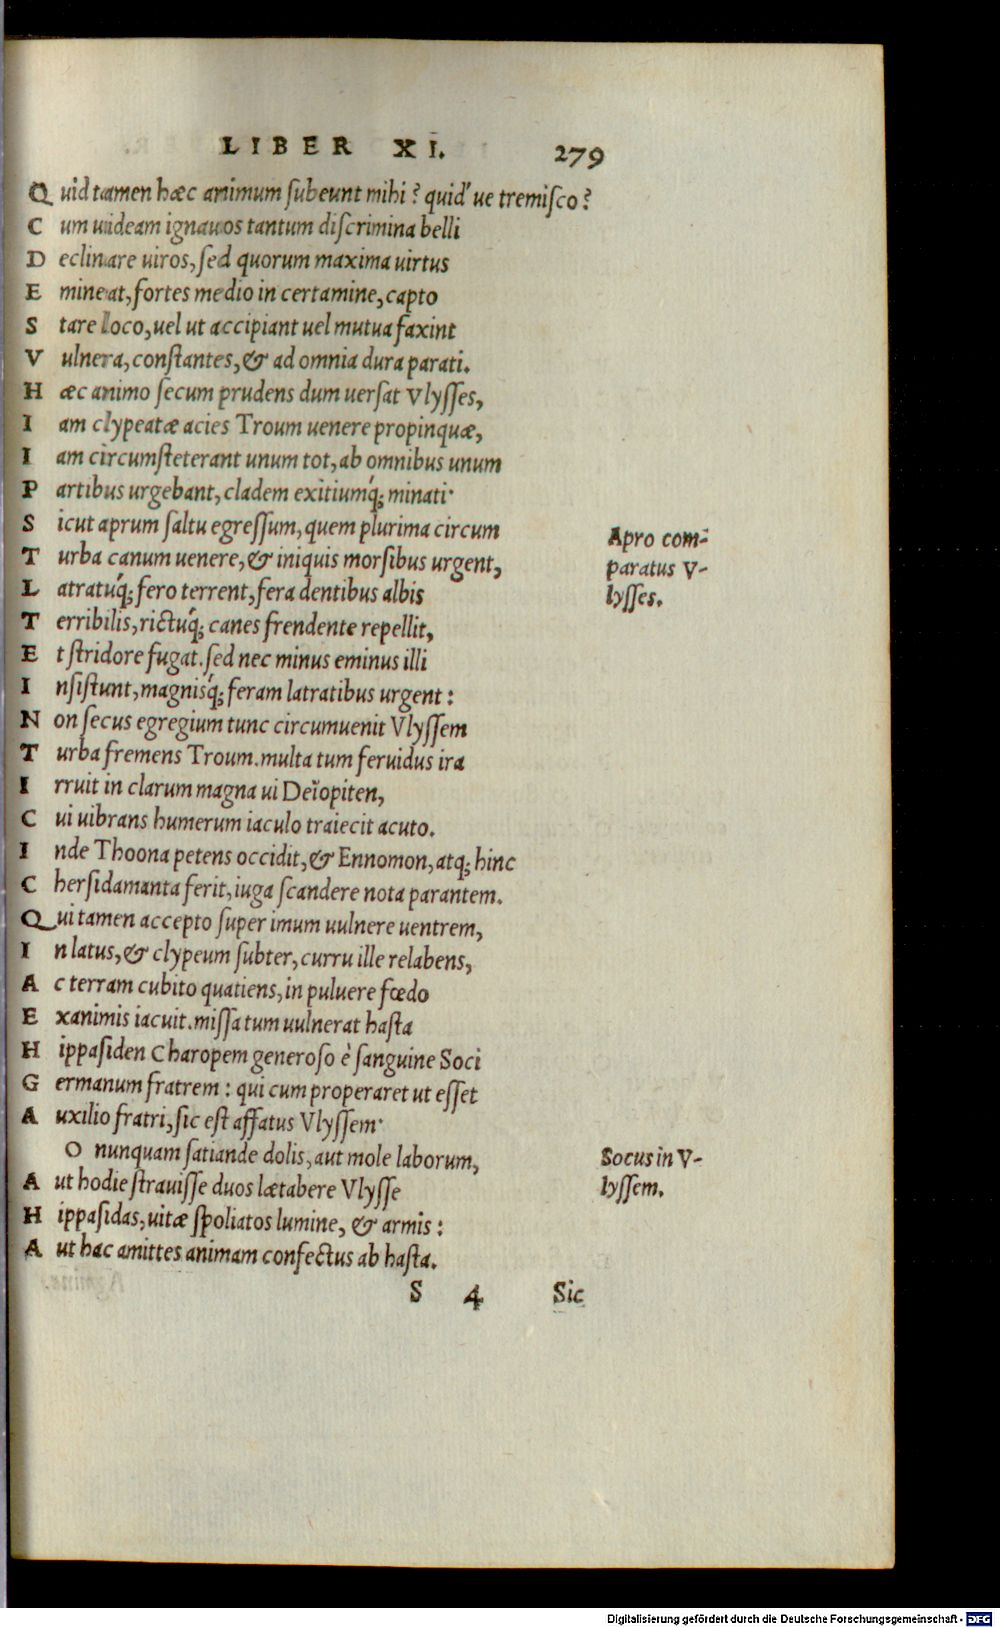 LIBER XI. 279
Quid tamen hæc animum ſubeunt mihi? quid' ue tremiſco?
Cum uideam ignauos tantum diſcrimina belli
Declinare uiros, ſed quorum maxima uirtus
Emineat, fortes medio in certamine, capto
Stare loco, uel ut accipiant uel mutua faxint
Vulnera, conſtantes, & ad omnia dura parati.
Hæc animo ſecum prudens dum uerſat Vlyſſes,
Iam clypeatæ acies Troum uenere propinquæ,
Iam circumſteterant unum tot, ab omnibus unum
Partibus urgebant, cladem exitiumq́; minati·
Sicut aprum ſaltu egreſſum, quem plurima circum
Apro com-
Turba canum uenere, & iniquis morſibus urgent,
paratus V-
Latratuq́; fero terrent, fera dentibus albis
lyſſes.
Terribilis, rictuq́; canes frendente repellit,
Et ſtridore fugat. ſed nec minus eminus illi
Inſiſtunt, magnisq́; feram latratibus urgent:
Non ſecus egregium tunc circumuenit Vlyſſem
Turba fremens Troum. multa tum feruidus ira
Irruit in clarum magna ui Deïopiten,
Cui uibrans humerum iaculo traiecit acuto.
Inde Thoona petens occidit, & Ennomon, atq; hinc
Cherſidamanta ferit, iuga ſcandere nota parantem.
Qui tamen accepto ſuper imum uulnere uentrem,
In latus, & clypeum ſubter, curru ille relabens,
Ac terram cubito quatiens, in puluere fœdo
Exanimis iacuit. miſſa tum uulnerat haſta
Hippaſiden Charopem generoſo è ſanguine Soci
Germanum fratrem: qui cum properaret ut eſſet
Auxilio fratri, ſic eſt affatus Vlyſſem·
O nunquam ſatiande dolis, aut mole laborum,
Socus in V-
Aut hodie ſtrauiſſe duos lætabere Vlyſſe
lyſſem.
Hippaſidas, uitæ ſpoliatos lumine, & armis:
Aut hac amittes animam confectus ab haſta.
S 4 Sic
Digitalisierung gefördert durch die Deutsche Forschungsgemeinschaft - DFG